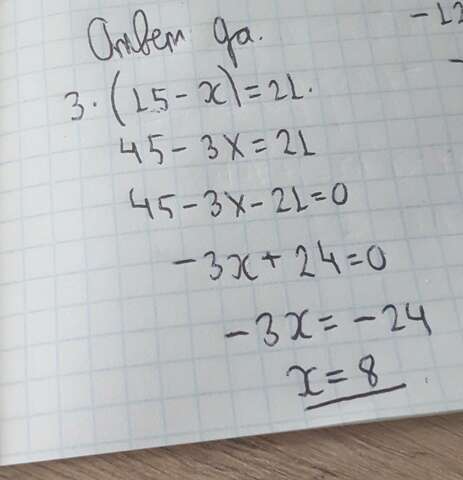 Ответ да.
3·(15-x)=21.
45-3x=21
45-3x-21=0
-3x+24=0
-3x=-24
x=8